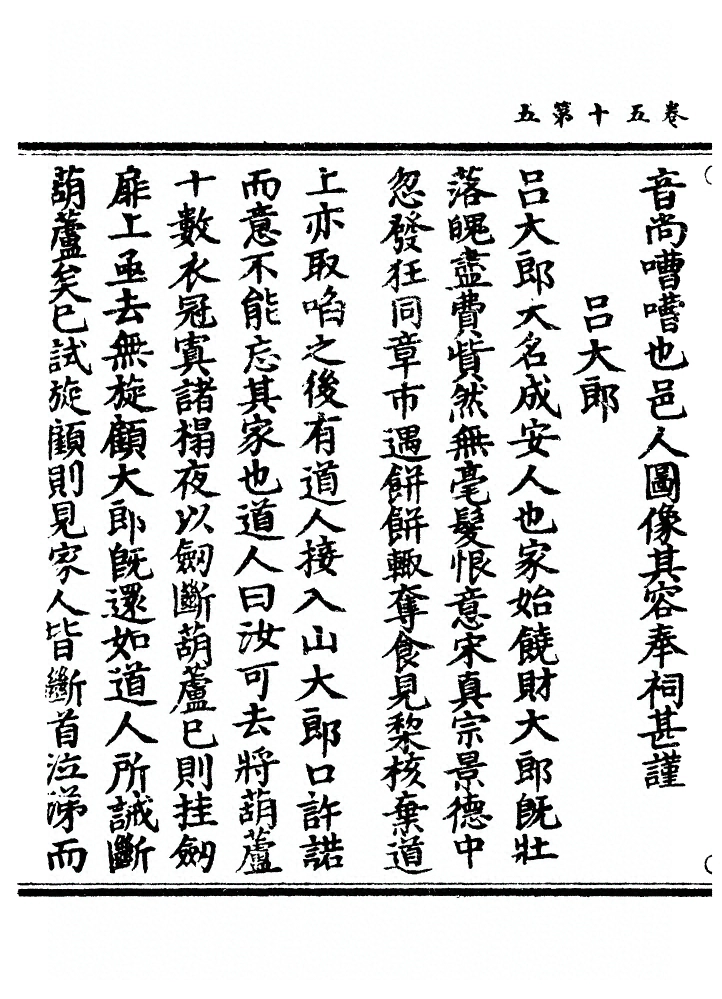 卷五十第五
音尚嘈囋也邑人圖像其容奉祠甚謹
呂大郎
呂大郎大名成安人也家始饒財大郎旣壯
落魄盡費貲然無毫髮恨意宋真宗景德中
忽發狂同章市遇餅餅輙奪食見棃核棄道
上亦取啗之後有道人接入山大郎口許諾
而意不能忘其家也道人曰汝可去將葫蘆
十數衣冠寘諸榻夜以劒斷葫蘆已則挂劒
扉上亟去無旋顧大郎旣還如道人所誡斷
葫蘆矣已試旋顧則見家人皆斷首泣涕而